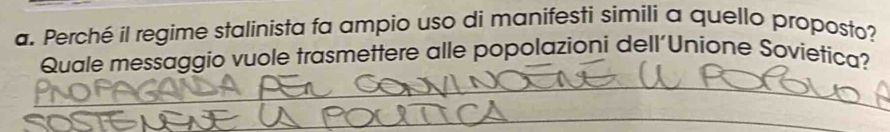 a. Perché il regime stalinista fa ampio uso di manifesti simili a quello proposto?
Quale messaggio vuole trasmettere alle popolazioni dell'Unione Sovietica?
PROPAGANDA PER CONVINCERE IL POPOLO A
SOSTENERE LA POLITICA